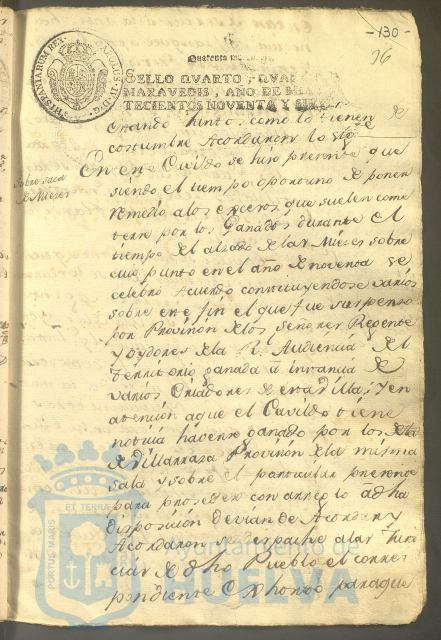 -130-
96
HISPANIARUM REX
CAROLUS IV D.G.
Quarenta
SELLO QVARTO, QVAR
MARAVEDIS, AÑO DE MIL
TECIENTOS NOVENTA Y
estando junto, como lo tienen de
costumbre Acordaron lo sigte
Sobre saca
de Mieses
En este Cavildo se hiso presente que
siendo el tiempo oportuno de poner
remedio a los excesos que suelen come
terse por los Ganados durante el
tiempo del alzado de las Mieses sobre
cuio punto en el año de noventa se
celebró Acuerdo constituyendose varios
sobre ese fin el que fue suspenso
por Provision de los Señores Regente
y oydores de la Rl. Audiencia del
Territorio ganada a instancia de
varios Criadores de esta Villa; y en
atencion a que el Cavildo tiene
noticia haverse ganado por los
de Villarraza Provision de la misma
sala y sobre el particular presente
para proseder con arreglo a dha
disposicion devian de Acordar y
Acordaron se despache a las Justi
cias de dho Pueblo el corres
pondiente Exhorto para que
PORTUS MARIS
ET TERRAE
Ayuntamiento de
HUELVA